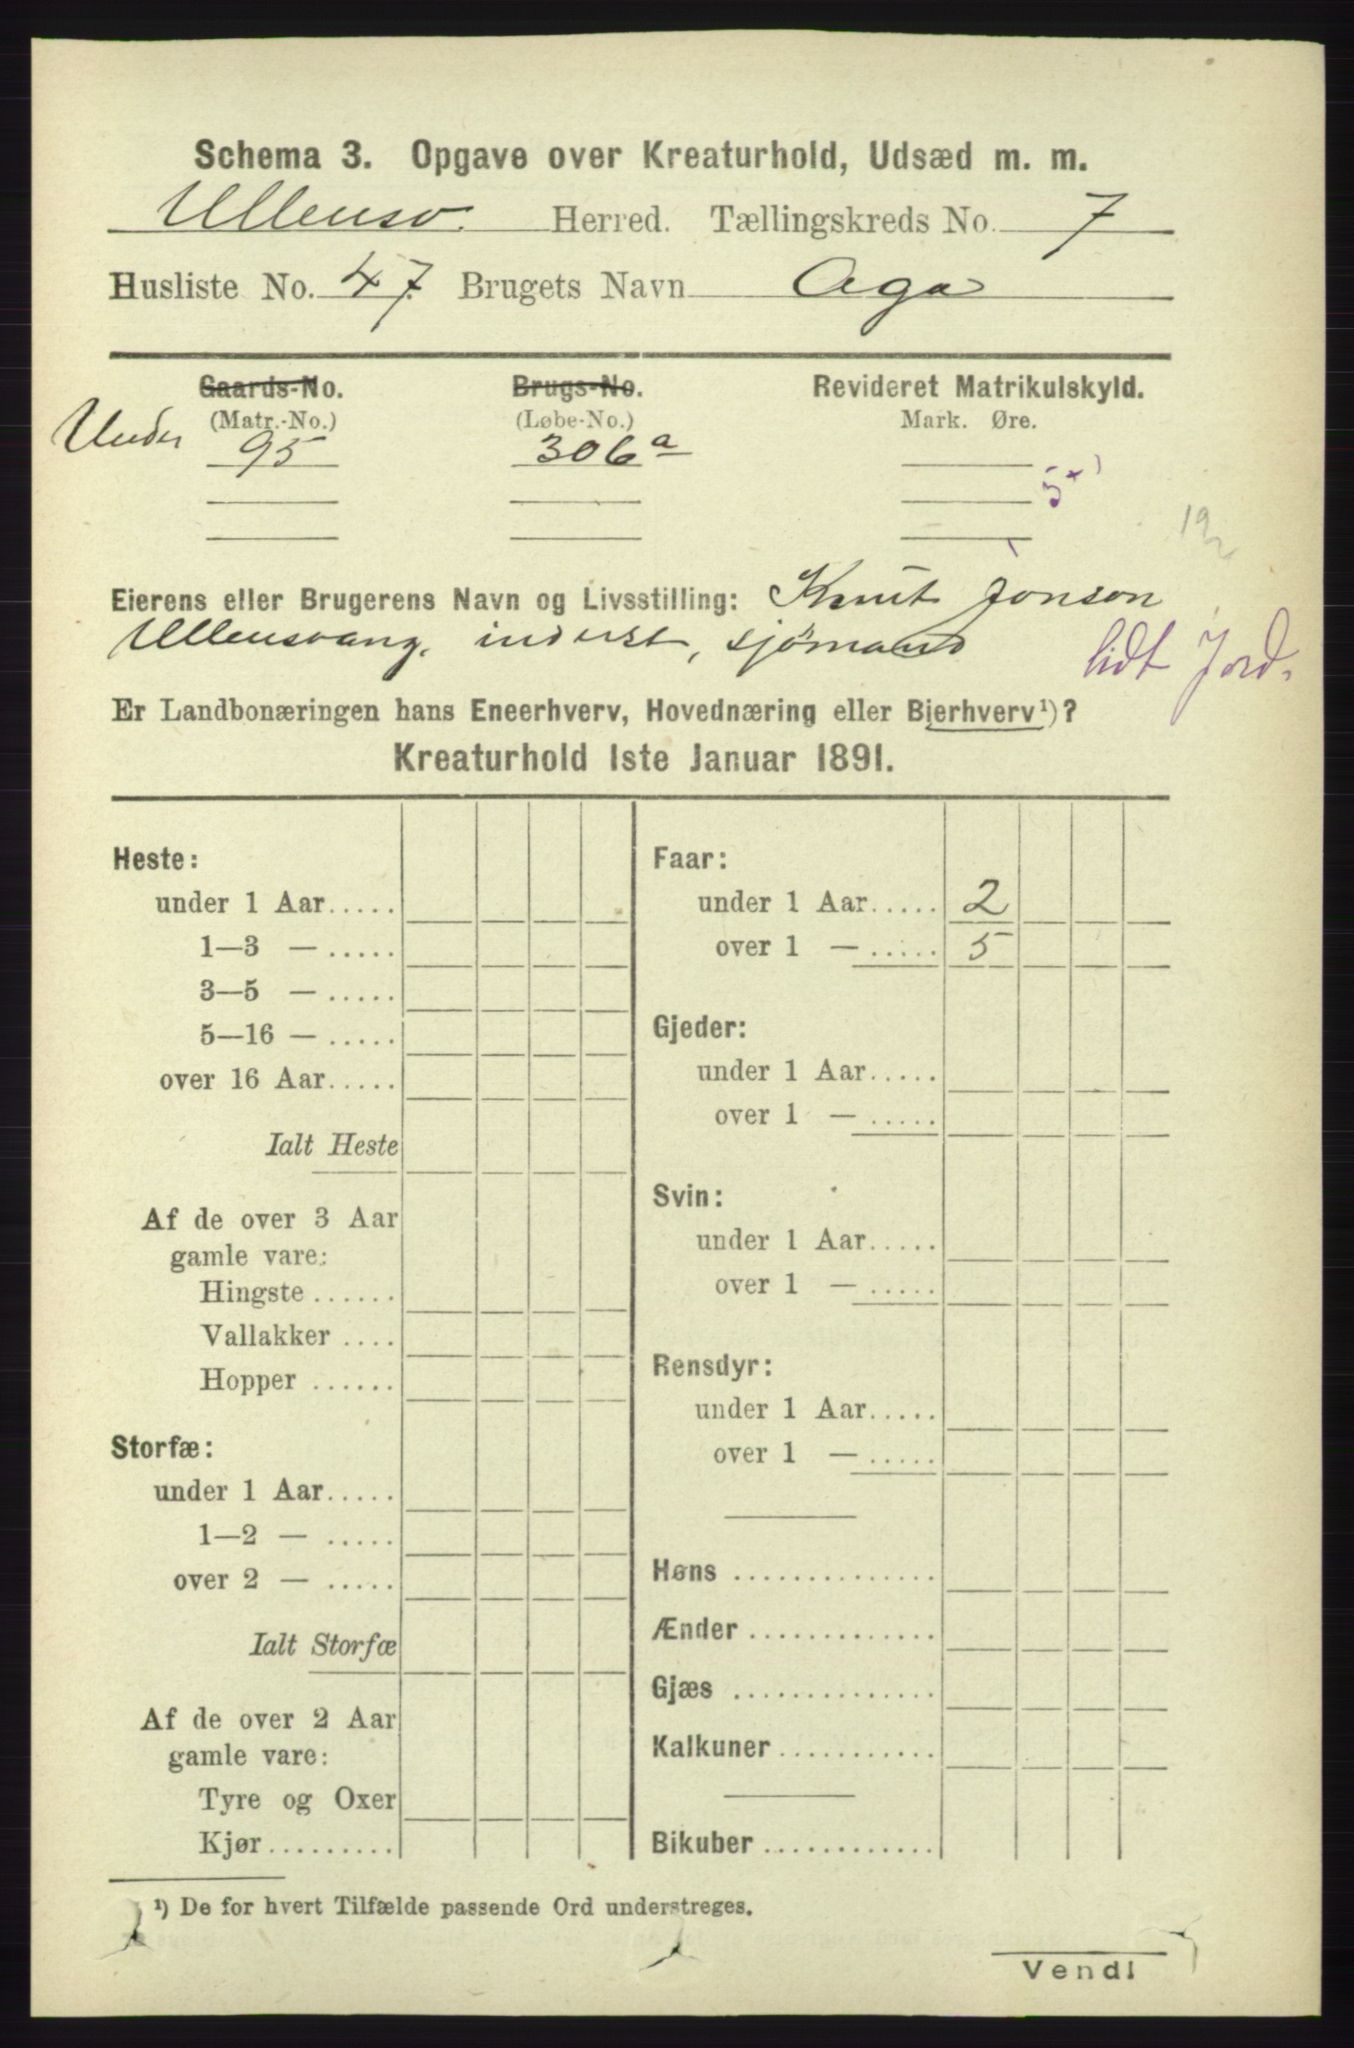 Schema 3. Opgave over Kreaturhold, Udsæd m. m.
Ullensv. Herred. Tællingskreds No. 7
Husliste No. 47 Brugets Navn Aga
Gaards-No. Brugs-No. Revideret Matrikulskyld.
(Matr.-No.) (Løbe-No.) Mark. Øre.
Under 95 306 a
5
Eierens eller Brugerens Navn og Livsstilling: Knut Jonson
Ullensvang, inderst, sjømand
lidt Jord.
Er Landbonæringen hans Eneerhverv, Hovednæring eller Bierhverv¹)?
Kreaturhold 1ste Januar 1891.
Heste:
under 1 Aar.....
1—3 — .....
3—5 — .....
5—16 — .....
over 16 Aar.....
Ialt Heste
Af de over 3 Aar
gamle vare:
Hingste ......
Vallakker ....
Hopper ......
Storfæ:
under 1 Aar.....
1—2 — .....
over 2 — .....
Ialt Storfæ
Af de over 2 Aar
gamle vare:
Tyre og Oxer
Kjør.........
Faar:
under 1 Aar..... 2
over 1 — ..... 5
Gjeder:
under 1 Aar.....
over 1 — .....
Svin:
under 1 Aar.....
over 1 — .....
Rensdyr:
under 1 Aar.....
over 1 — .....
Høns ..............
Ænder .............
Gjæs ..............
Kalkuner...........
Bikuber ............
¹) De for hvert Tilfælde passende Ord understreges.
Vend!